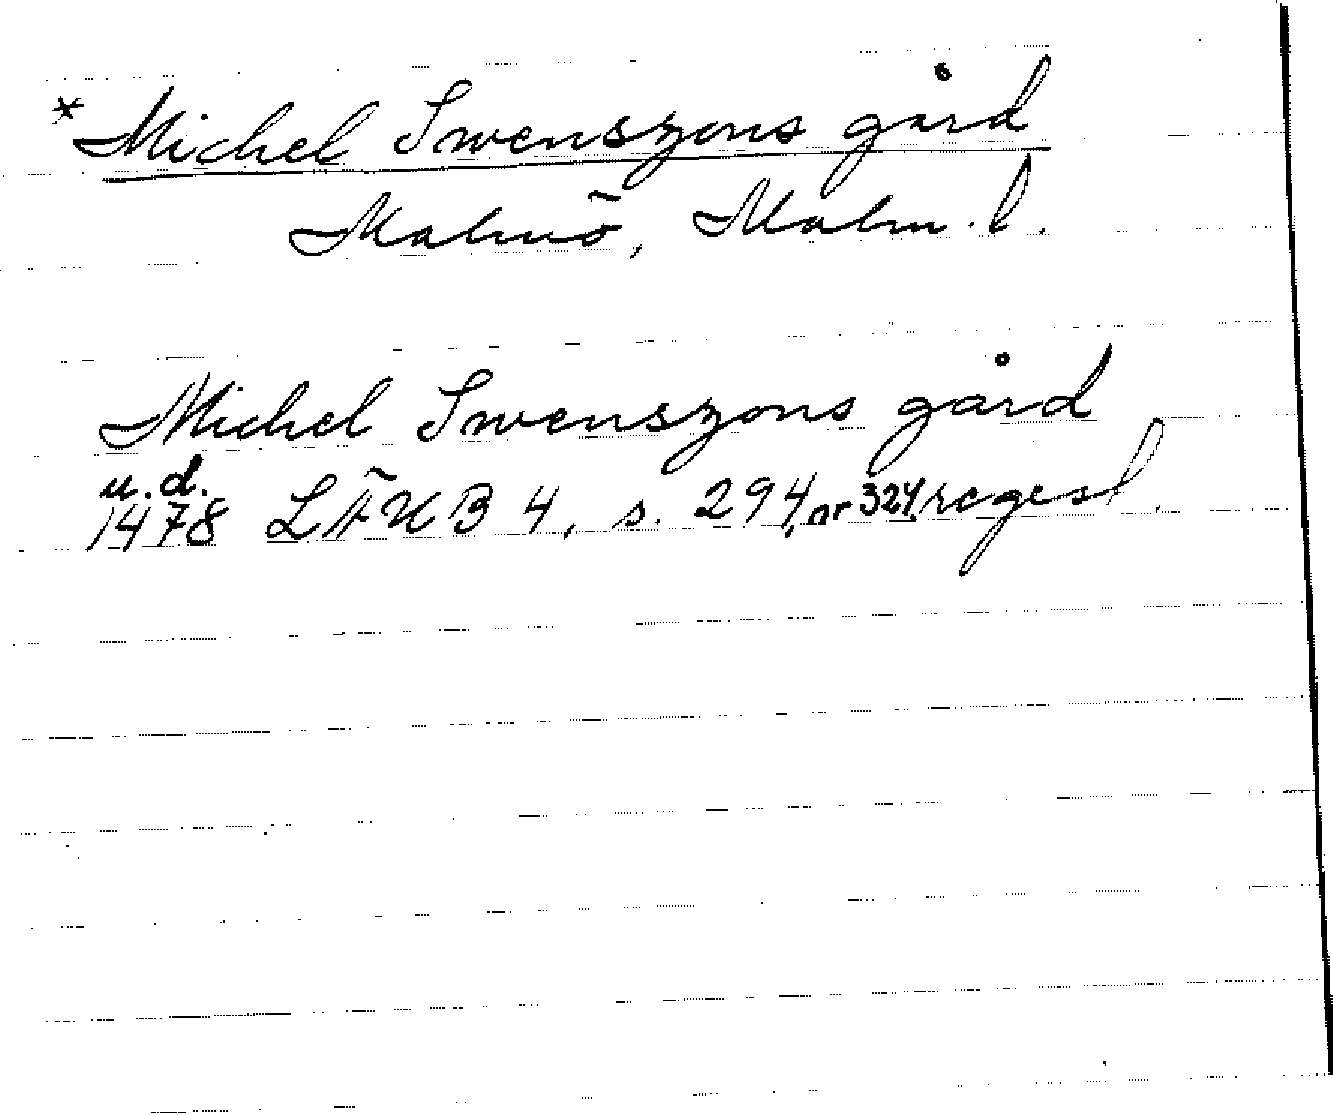 * Michel Swenszons gård
Malmö, Malm. l.
Michel Swenszons gård
u.d.
1478 LÄUB 4, s. 294, nr 324, regest.